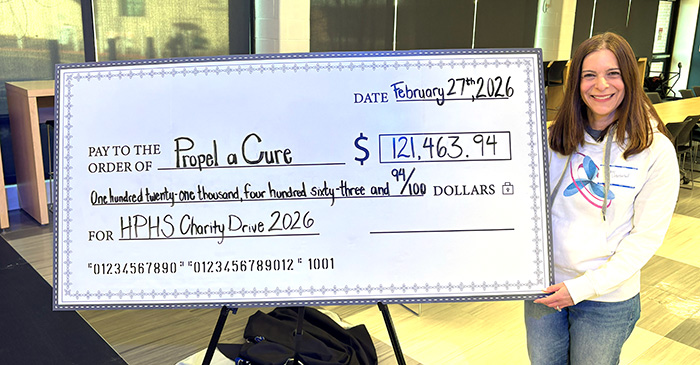 DATE February 27th, 2026
PAY TO THE
ORDER OF Propel a Cure $ 121,463.94
One hundred twenty-one thousand, four hundred sixty-three and 94/100 DOLLARS
FOR HPHS Charity Drive 2026
⑈01234567890⑈ ⑈0123456789012⑈ 1001